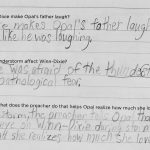 does make Opal's father laugh?
e makes Opal's father laugh
like he was laughing.
understorm affect Winn-Dixie?
e was afraid of the thunderst
pathological fear.
What does the preacher do that helps Opal realize how much she lo
storm, the preacher tells Opal tha
eye on Winn-Dixie during the
nd she realizes how much she lov